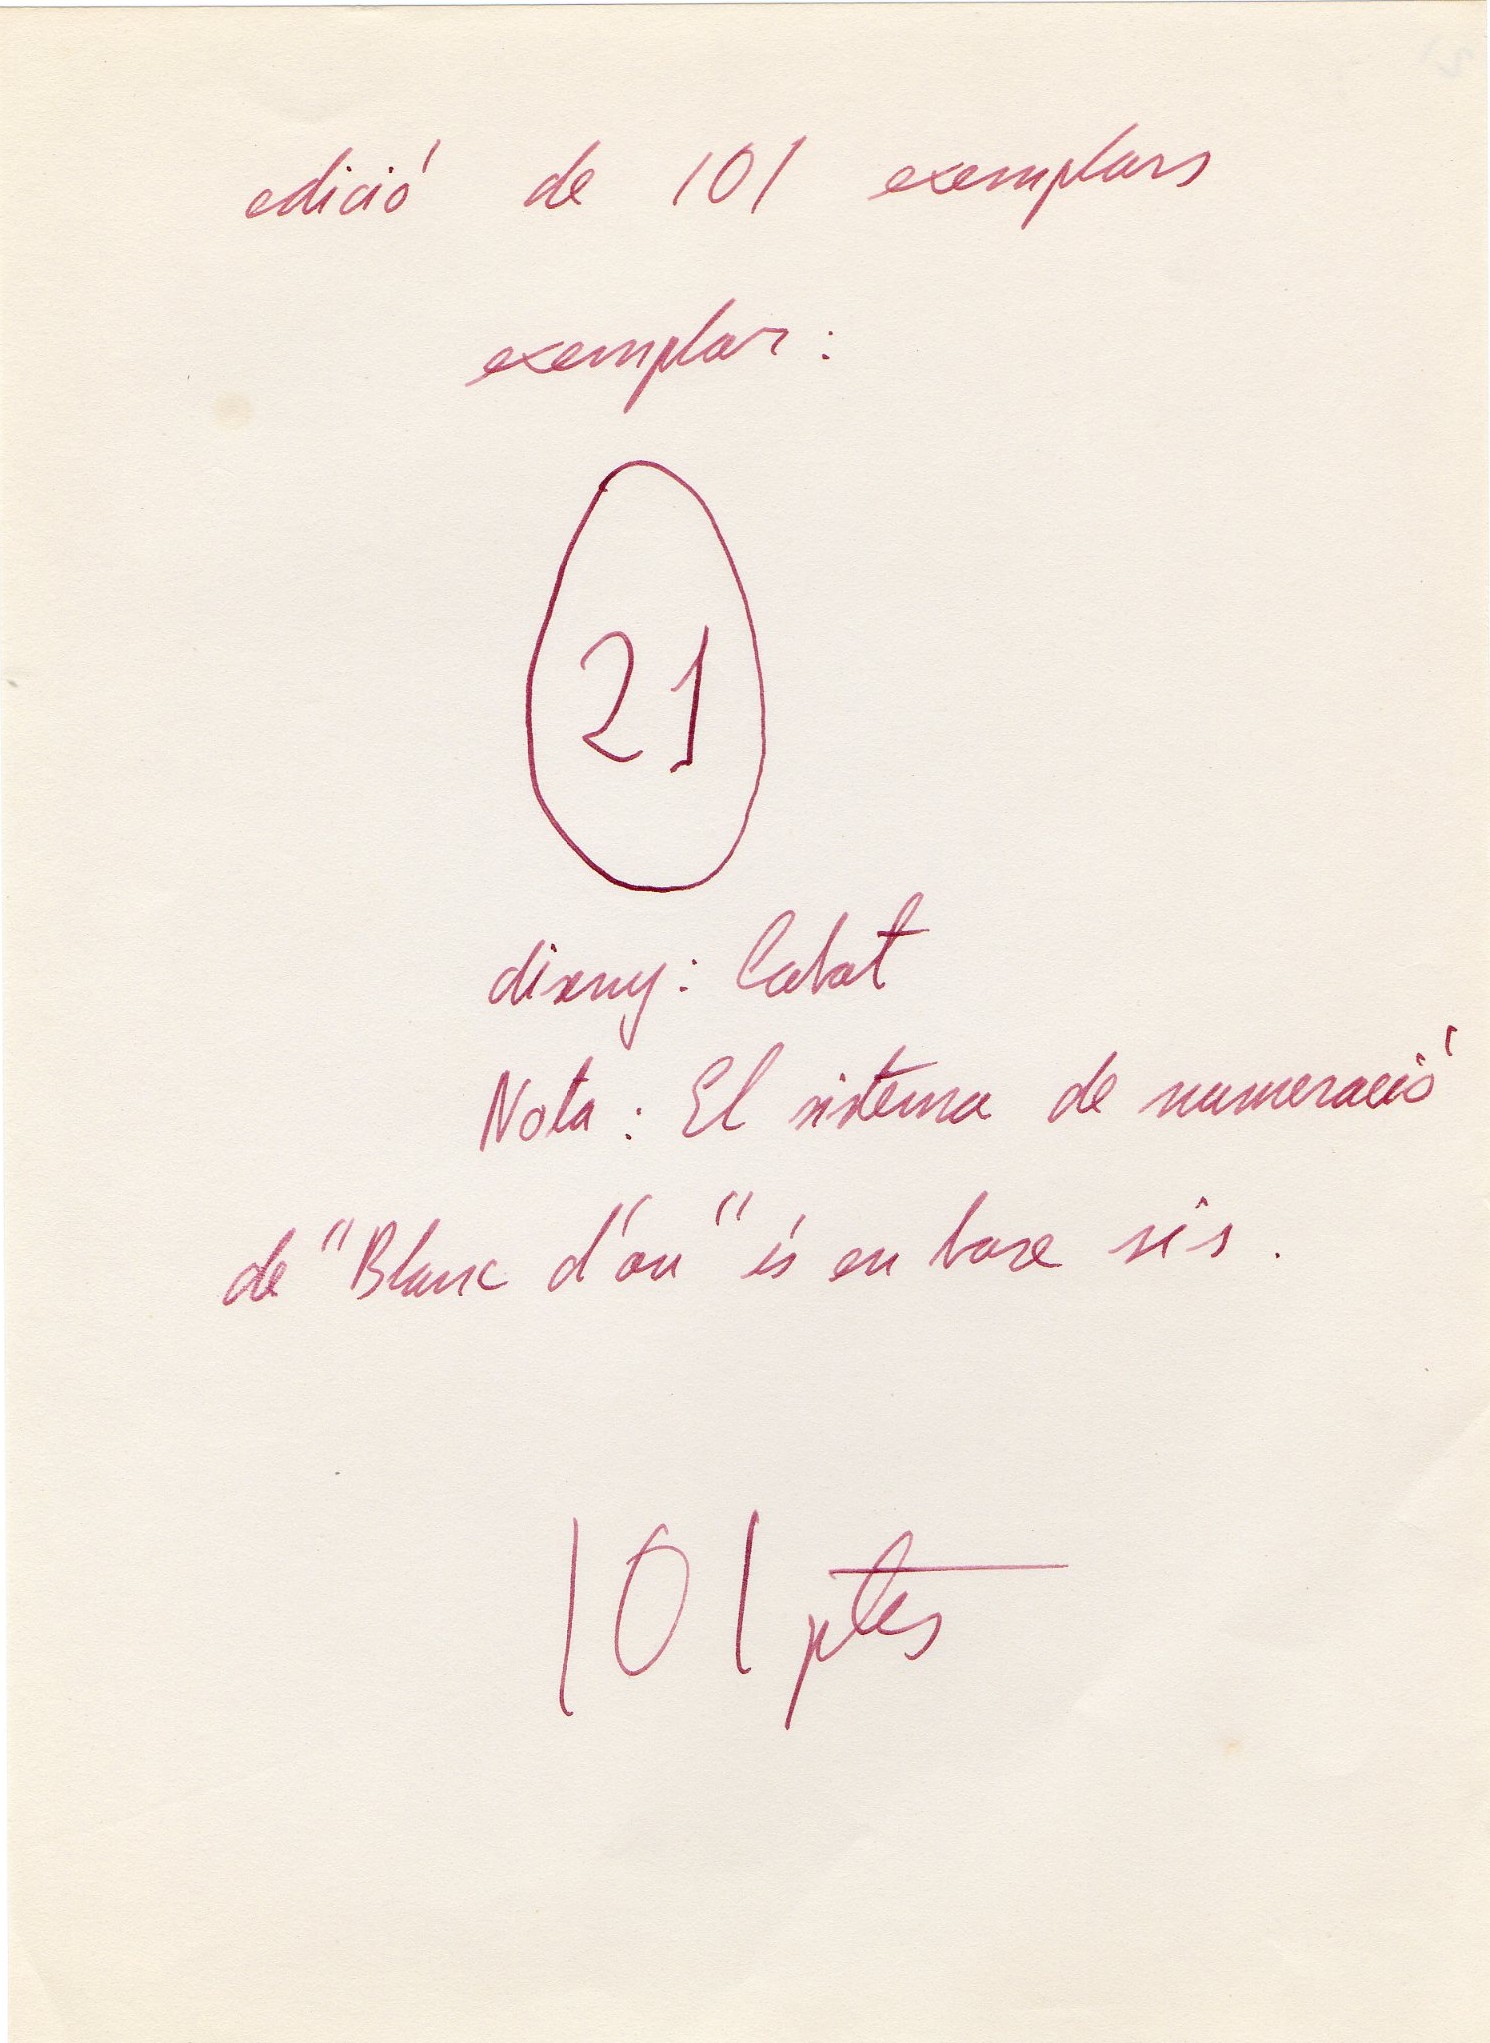 edició de 101 exemplars
exemplar:
21
diseny: Cabat
Nota: El sistema de numeració
de "Blanc d'ou" és en base sis.
101 ptes